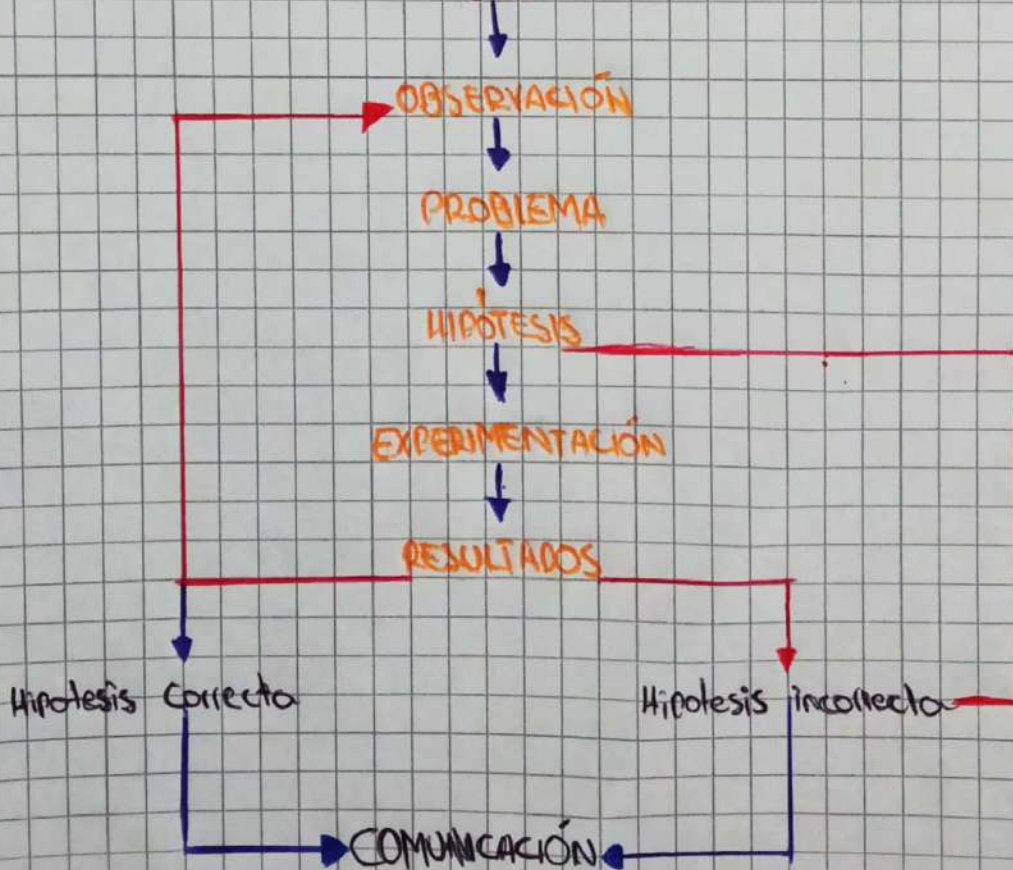 OBSERVACIÓN
PROBLEMA
HIPÓTESIS
EXPERIMENTACIÓN
RESULTADOS
Hipotesis correcta
Hipotesis incorrecta
COMUNICACIÓN